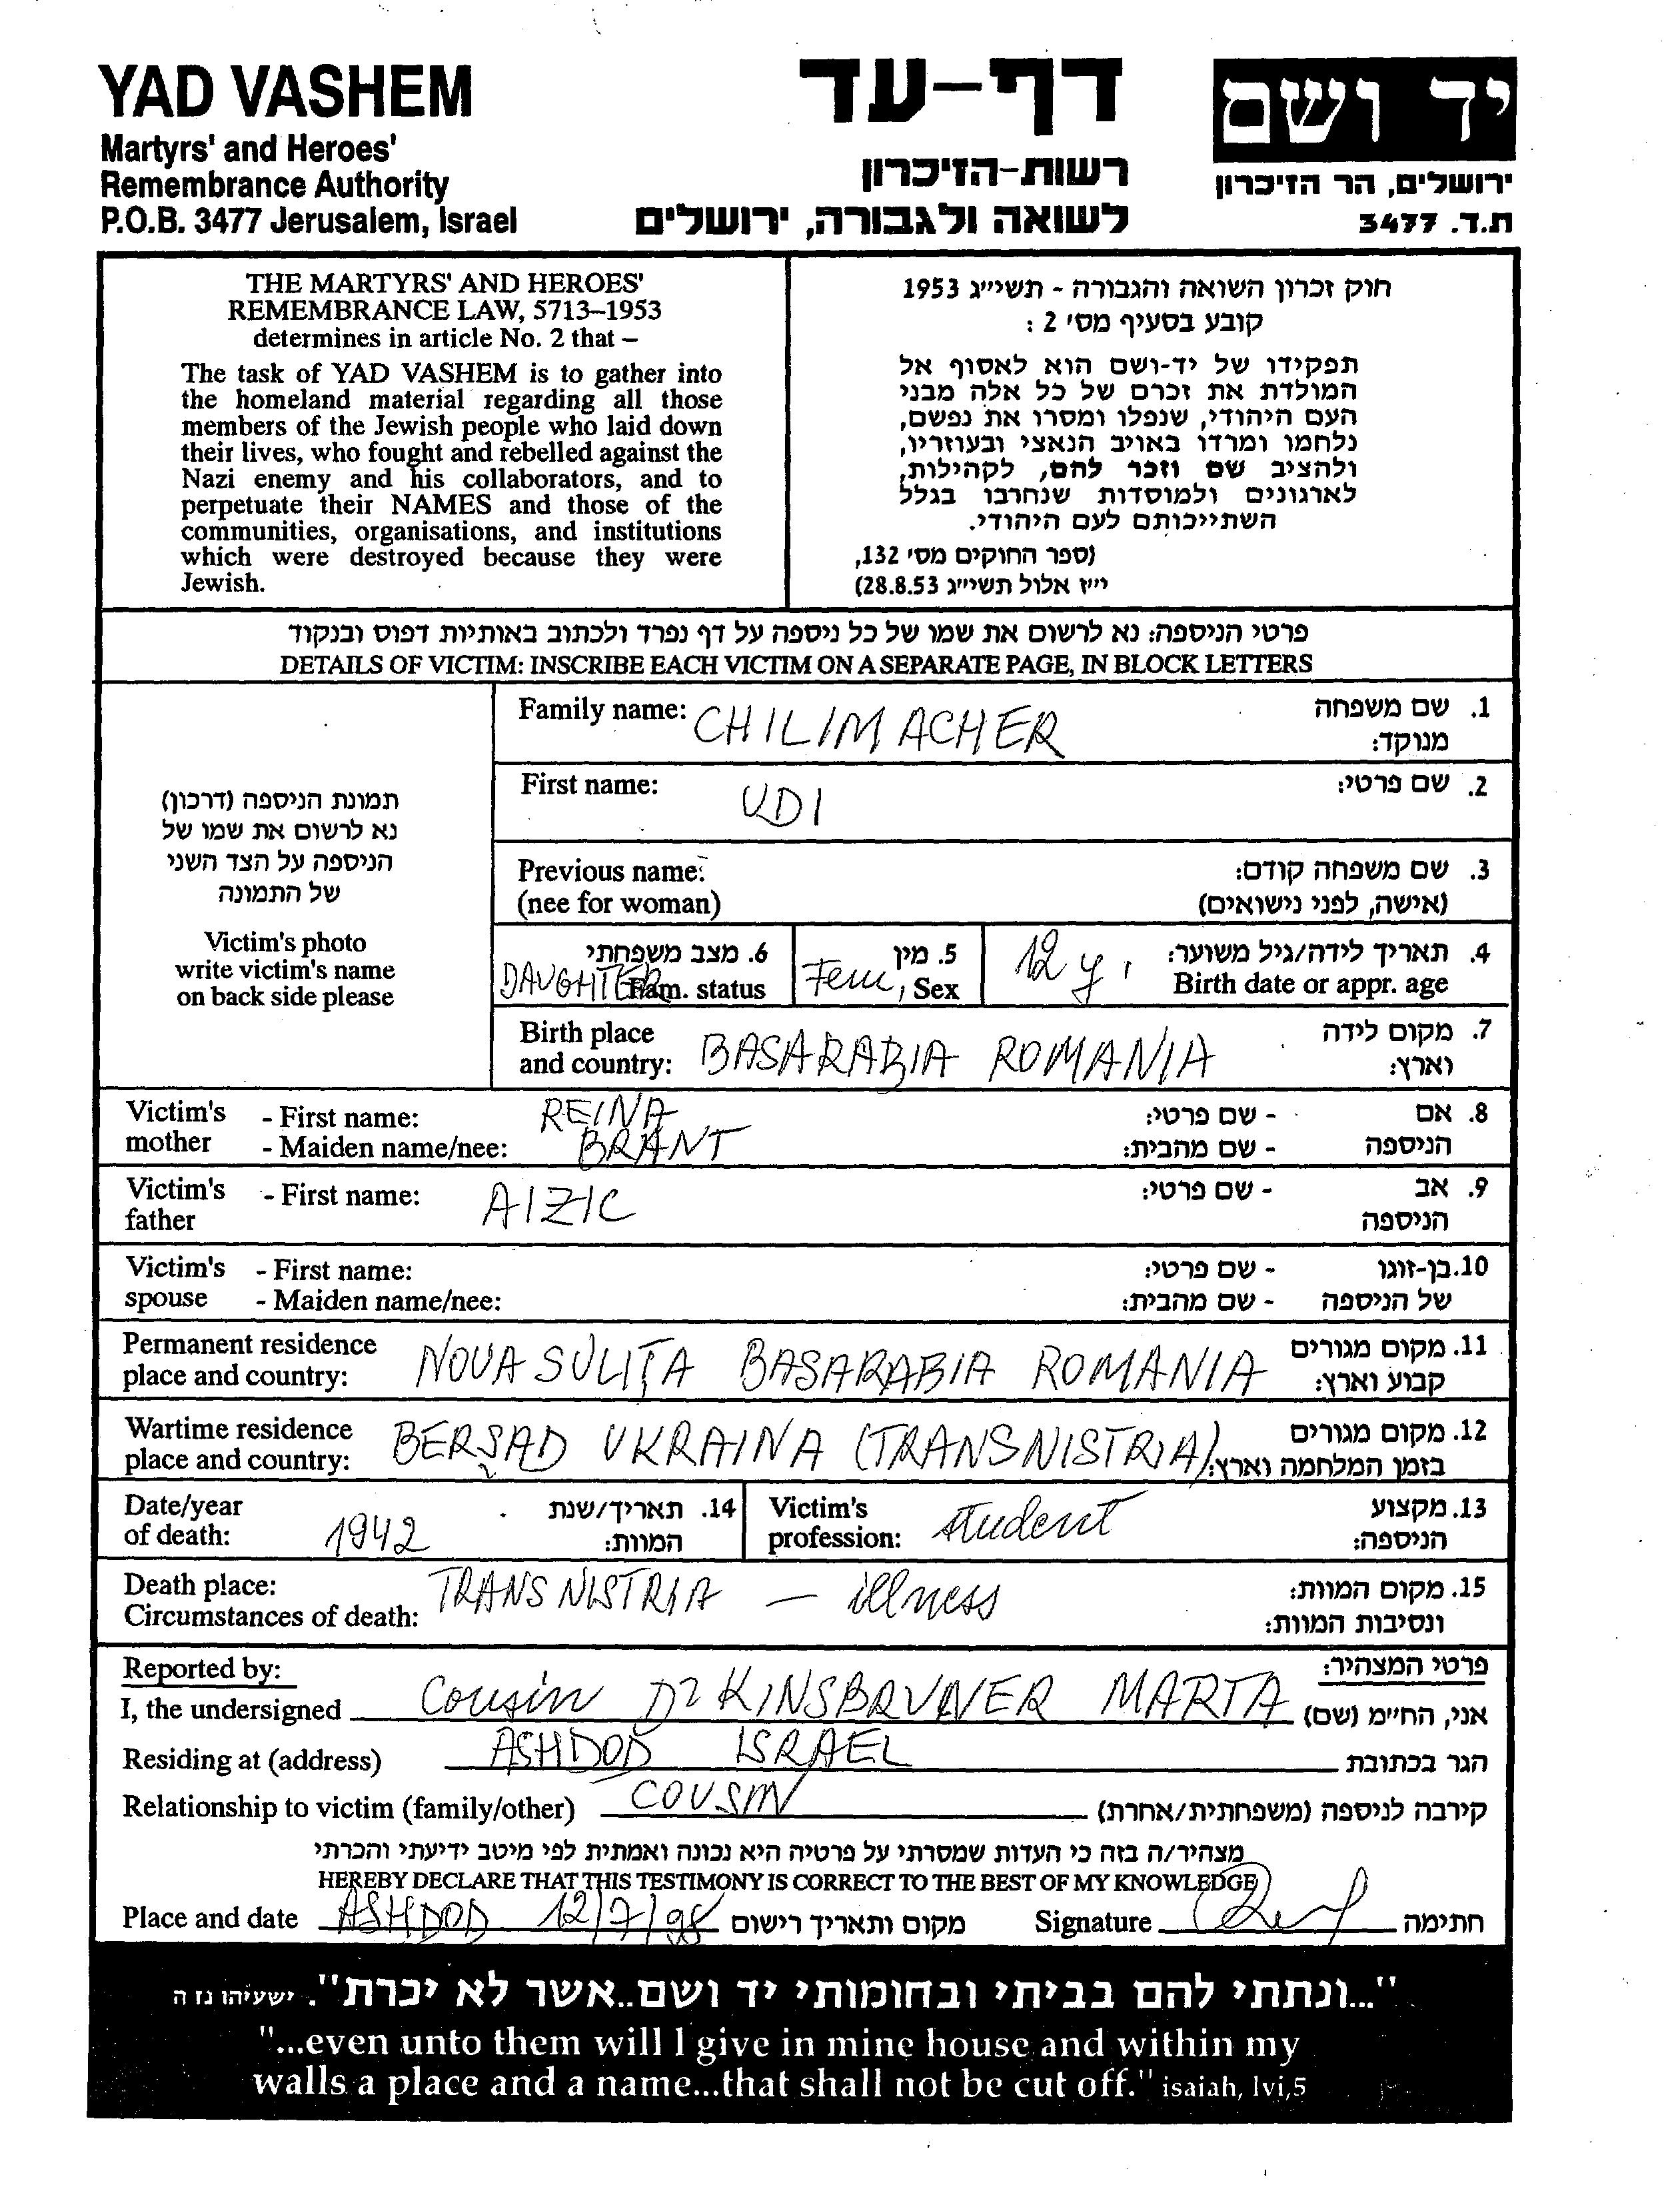 YAD VASHEM
Martyrs' and Heroes'
Remembrance Authority
P.O.B. 3477 Jerusalem, Israel
דף-עד
רשות-הזיכרון
לשואה ולגבורה, ירושלים
יד ושם
ירושלים, הר הזיכרון
ת.ד. 3477
THE MARTYRS' AND HEROES'
REMEMBRANCE LAW, 5713–1953
determines in article No. 2 that –
The task of YAD VASHEM is to gather into
the homeland material regarding all those
members of the Jewish people who laid down
their lives, who fought and rebelled against the
Nazi enemy and his collaborators, and to
perpetuate their NAMES and those of the
communities, organisations, and institutions
which were destroyed because they were
Jewish.
חוק זכרון השואה והגבורה - תשי״ג 1953
קובע בסעיף מס׳ 2 :
תפקידו של יד-ושם הוא לאסוף אל
המולדת את זכרם של כל אלה מבני
העם היהודי, שנפלו ומסרו את נפשם,
נלחמו ומרדו באויב הנאצי ובעוזריו,
ולהציב שם וזכר להם, לקהילות,
לארגונים ולמוסדות שנחרבו בגלל
השתייכותם לעם היהודי.
(ספר החוקים מס׳ 132,
י״ז אלול תשי״ג 28.8.53)
פרטי הניספה: נא לרשום את שמו של כל ניספה על דף נפרד ולכתוב באותיות דפוס ובנקוד
DETAILS OF VICTIM: INSCRIBE EACH VICTIM ON A SEPARATE PAGE, IN BLOCK LETTERS
תמונת הניספה (דרכון)
נא לרשום את שמו של
הניספה על הצד השני
של התמונה
Victim's photo
write victim's name
on back side please
Family name: CHILIMACHER 1. שם משפחה
מנוקד:
First name: UDI 2. שם פרטי:
Previous name: 3. שם משפחה קודם:
(nee for woman) (אישה, לפני נישואים)
6. מצב משפחתי 5. מין 12 y. 4. תאריך לידה/גיל משוער:
DAUGHTER Fam. status Fem, Sex Birth date or appr. age
Birth place 7. מקום לידה
and country: BASARABIA ROMANIA וארץ:
Victim's - First name: REINA - שם פרטי: 8. אם
mother - Maiden name/nee: BRANT - שם מהבית: הניספה
Victim's - First name: AIZIC - שם פרטי: 9. אב
father הניספה
Victim's - First name: - שם פרטי: 10. בן-זוגו
spouse - Maiden name/nee: - שם מהבית: של הניספה
Permanent residence 11. מקום מגורים
place and country: NOUA SULIŢA BASARABIA ROMANIA קבוע וארץ:
Wartime residence 12. מקום מגורים
place and country: BERȘAD UKRAINA (TRANSNISTRIA) בזמן המלחמה וארץ:
Date/year 14. תאריך/שנת Victim's 13. מקצוע
of death: 1942 המוות: profession: student הניספה:
Death place: TRANSNISTRIA – illness 15. מקום המוות:
Circumstances of death: ונסיבות המוות:
Reported by: פרטי המצהיר:
I, the undersigned Cousin Dr KINSBRUNER MARTA אני, הח״מ (שם)
Residing at (address) ASHDOD ISRAEL הגר בכתובת
Relationship to victim (family/other) COUSIN קירבה לניספה (משפחתית/אחרת)
מצהיר/ה בזה כי העדות שמסרתי על פרטיה היא נכונה ואמתית לפי מיטב ידיעתי והכרתי
HEREBY DECLARE THAT THIS TESTIMONY IS CORRECT TO THE BEST OF MY KNOWLEDGE
Place and date ASHDOD 12/7/98 מקום ותאריך רישום Signature חתימה
"...ונתתי להם בביתי ובחומותי יד ושם..אשר לא יכרת". ישעיהו נו ה
"...even unto them will I give in mine house and within my
walls a place and a name...that shall not be cut off." isaiah, lvi,5